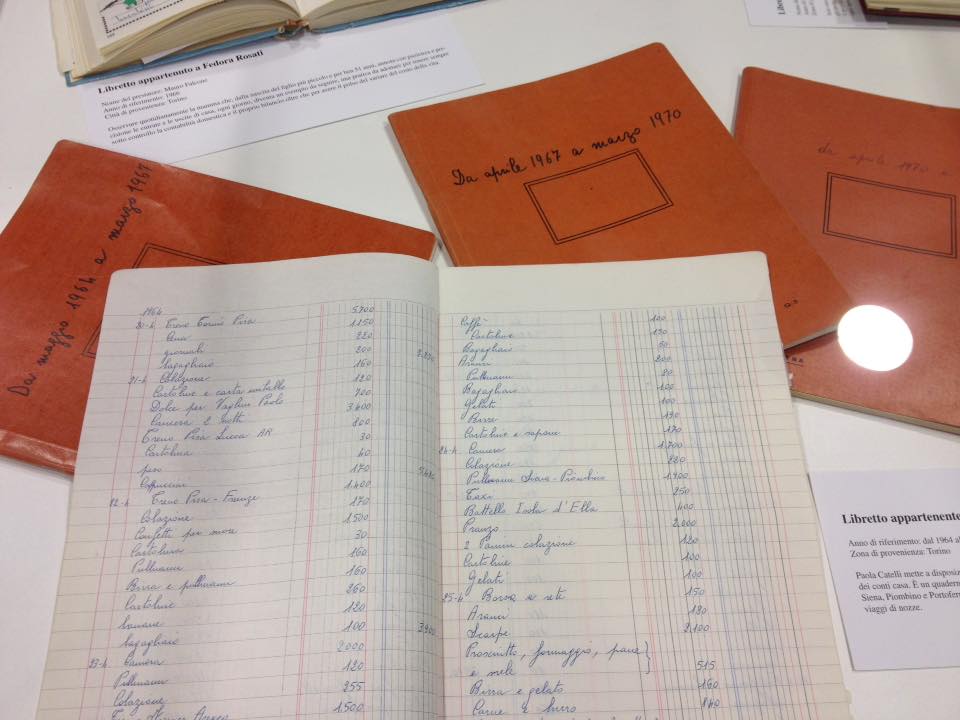 Libretto appartenuto a Fedora Rosati
Nome del prestatore: Mauro Falcone
Anno di riferimento: 1966
Città di provenienza: Torino
Osservare quotidianamente la mamma che, dalla nascita del figlio più piccolo e per ben 51 anni, annota con pazienza e pre-
cisione le entrate e le uscite di casa, ogni giorno, diventa un esempio da seguire, una pratica da adottare per tenere sempre
sotto controllo la contabilità domestica e il proprio bilancio oltre che per avere il polso del variare del costo della vita.
Libretto
Da aprile 1967 a marzo 1970
da aprile 1970 a
Da maggio 1964 a marzo 1967
1964 5.700
20-4 Treno Torino Pisa 1150
Cena 220
giornali 200 2.270
bagagliaio 160
21-4 Colazione 120
Cartoline e carta
Dolce per Paolo 3.400
Camera 2 notti 800
Treno Pisa Lucca AR 30
Cartolina 40
peso 170
Cappuccini 1.400
22-4 Treno Pisa - Firenze 170
Colazione 1500
Confetti per suore 30
Cartolina 160
Pullmann 160
Birra e pullmann 260
Cartoline 120
banane 100 3.900
bagagliaio 2000
23-4 Camera 120
Pullmann 255
Colazione 1.500
Caffè 100
Cartoline 150
Bagagliaio
Aranci 200
Pullmann
Bagagliaio 100
Gelati 100
Birra 190
Cartoline e sapone 170
24-4 Camera 1.700
Colazione 220
Pullmann Siena - Piombino 1.900
Taxi 250
Battello Isola d'Elba 400
Pranzo 2.000
2 Panini colazione 120
Cartoline 100
Gelati 100
25-4 Borsa a rete 150
Aranci
Scarpe 2.100
Prosciutto, formaggio, pane
e mele 515
Birra e gelato 160
Carne e burro
Libretto appartenente
Anno di riferimento: dal 1964 al
Zona di provenienza: Torino
Paola Catelli mette a disposiz
dei conti casa. È un quadern
Siena, Piombino e Portofer
viaggi di nozze.